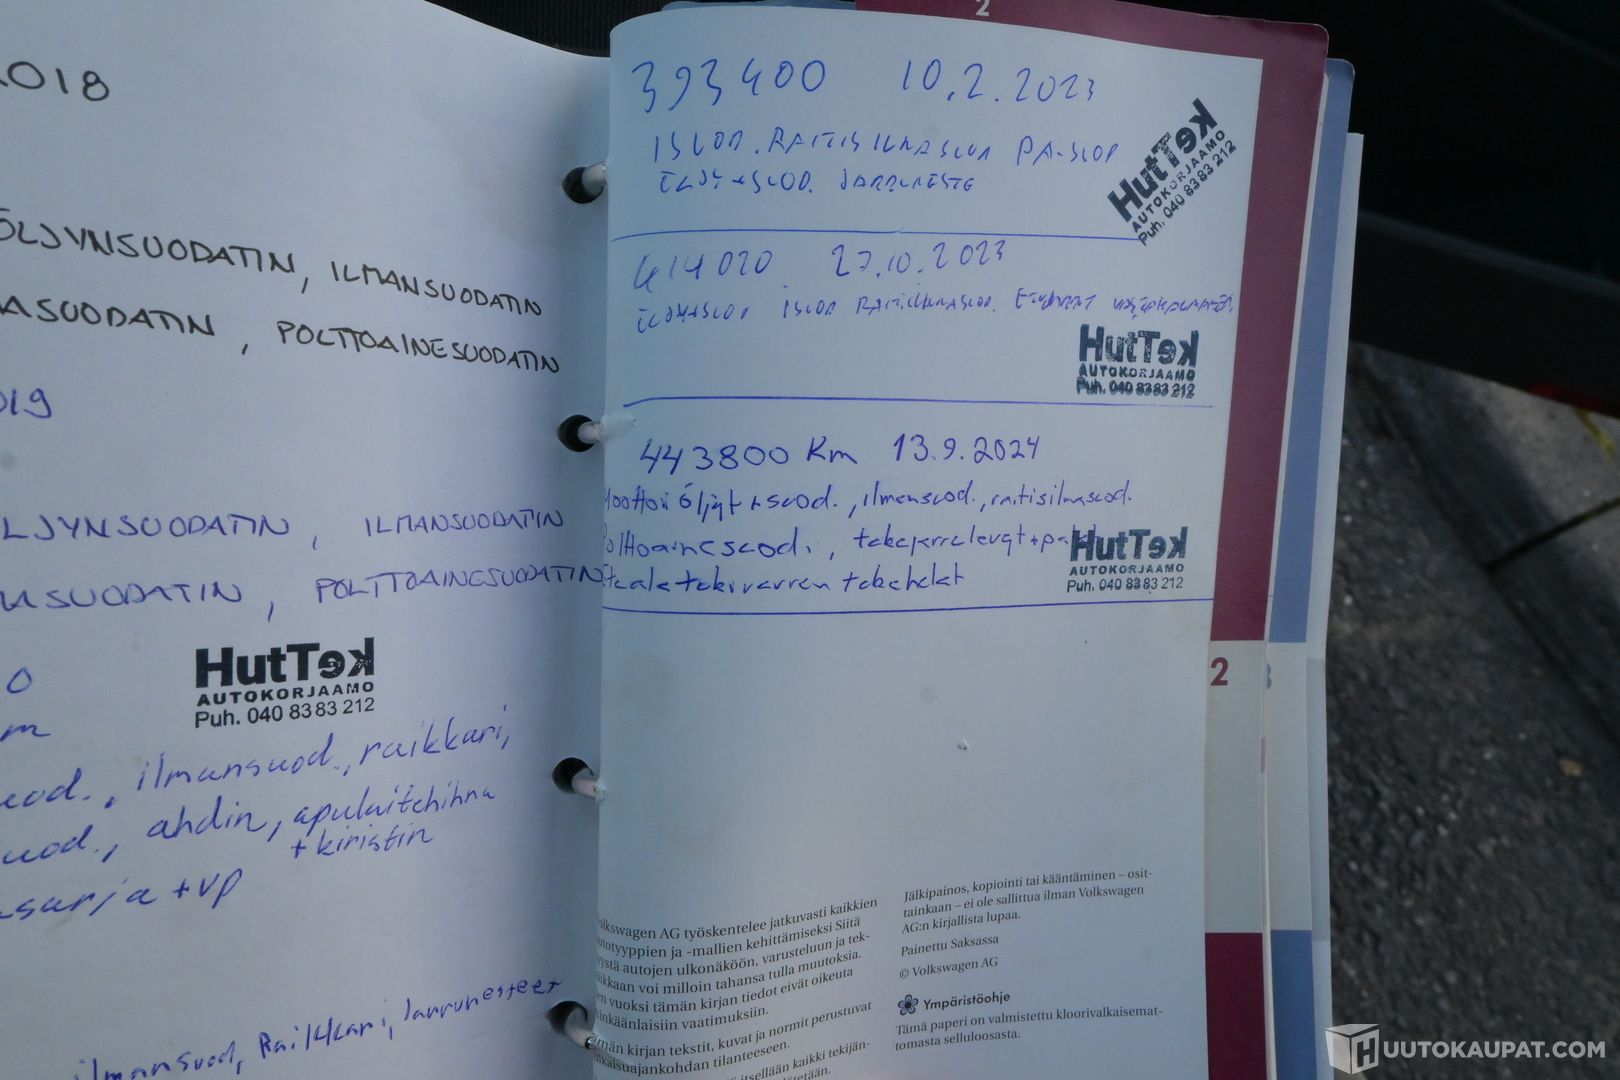 2018
ÖLJYNSUODATIN, ILMANSUODATIN
ASUODATIN, POLTTOAINESUODATIN
019
LJYNSUODATIN, ILMANSUODATIN
SUODATIN, POLTTOAINESUODATIN
HutTek
AUTOKORJAAMO
Puh. 040 8383 212
0
m
uod., ilmansuod., raikkari,
uod., ahdin, apulaitehihna
+ kiristin
sarja + vp
ilmansuod, Raikkari, Jarrunesteet
2
393400 10.2.2023
ISUOD. RAITISILMASUOD PA-SUOD
ÖLJY+SUOD. JARRUNESTE
HutTek
AUTOKORJAAMO
Puh. 040 8383 212
414020 27.10.2023
ÖLJY+SUOD ISUOD RAITISILMASUOD.
HutTek
AUTOKORJAAMO
Puh. 040 8383 212
443800 Km 13.9.2024
Moottori öljyt + suod., ilmansuod., raitisilmasuod.
Polttoainesuod., takajarrulevyt +
Etuala tukivarren takahelat
HutTek
AUTOKORJAAMO
Puh. 040 8383 212
2
olkswagen AG työskentelee jatkuvasti kaikkien
utotyyppien ja -mallien kehittämiseksi Siitä
yystä autojen ulkonäköön, varusteluun ja tek-
ikkaan voi milloin tahansa tulla muutoksia.
en vuoksi tämän kirjan tiedot eivät oikeuta
inkäänlaisiin vaatimuksiin.
ämän kirjan tekstit, kuvat ja normit perustuvat
lkaisuajankohdan tilanteeseen.
itsellään kaikki tekijän-
Jälkipainos, kopiointi tai kääntäminen – osit-
tainkaan – ei ole sallittua ilman Volkswagen
AG:n kirjallista lupaa.
Painettu Saksassa
© Volkswagen AG
Ympäristöohje
Tämä paperi on valmistettu kloorivalkaisemat-
tomasta selluloosasta.
HUUTOKAUPAT.COM